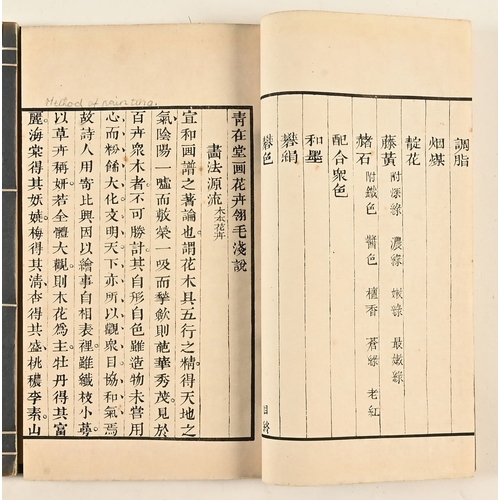 調脂
烟煤
靛花
藤黃 附深綠 濃綠 嫩綠 最嫩綠
赭石 附鐵色 醬色 檀香 蒼綠 老紅
配合衆色
和墨
礬絹
礬色
目終
Method of painting.
青在堂画花卉翎毛淺說
畫法源流 木本花卉
宣和画譜之著論也謂花木具五行之精得天地之
氣陰陽一噓而敷榮一吸而揫斂則葩華秀茂見於
百卉衆木者不可勝計其自形自色雖造物未嘗用
心而粉餙大化文明天下亦所以觀衆目協和氣焉
故詩人用寄比興因以繪事自相表裡雖纖枝小蕚
以草卉稱妍若全體大觀則木花為主牡丹得其富
麗海棠得其妖嬈梅得其清杏得其盛桃穠李素山